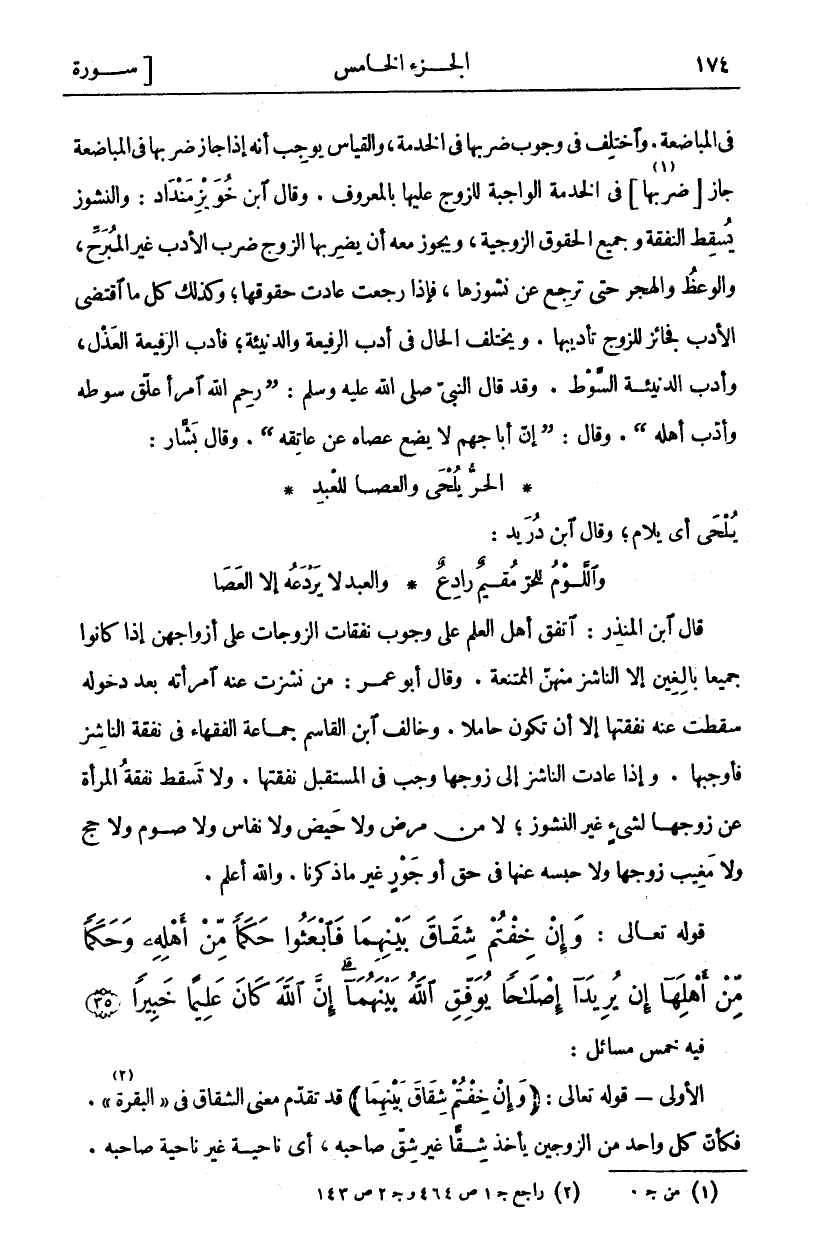 ١٧٤ الجزء الخامس [ سورة
فى المباضعة. وآختلِف فى وجوب ضربها فى الخدمة، والقياس يوجِب أنه إذا جاز ضربها فى المباضعة
جاز [ ضربها ](١) فى الخدمة الواجبة للزوج عليها بالمعروف . وقال آبن خُوَيْزِمَنْدَاد : والنشوز
يُسقِط النفقة وجميع الحقوق الزوجية ، ويجوز معه أن يضربها الزوج ضرب الأدب غير المُبَرِّح ،
والوعظُ والهجر حتى ترجع عن نشوزها ، فإذا رجعت عادت حقوقها؛ وكذلك كل ما آقتضى
الأدب فجائز للزوج تأديبها . ويختلف الحال فى أدب الرفيعة والدنيئة؛ فأدب الرفيعة العَذْل،
وأدب الدنيئة السَّوْط . وقد قال النبىّ صلى الله عليه وسلم : ” رحِم الله آمرأ علّق سوطه
وأدّب أهله “ . وقال : ” إنّ أبا جهم لا يضع عصاه عن عاتِقه “ . وقال بَشّار :
* الحرُّ يُلْحَى والعصا للعبْدِ *
يُلْحَى أى يلام؛ وقال آبن دُرَيد :
وآللَّوْمُ للحرّ مُقيمٌ رادِعٌ * والعبد لا يَرْدَعُه إلا العَصَا
قال آبن المنذِر : آتفق أهل العلم على وجوب نفقات الزوجات على أزواجهن إذا كانوا
جميعا بالِغِين إلا الناشز منهنّ الممتنعة . وقال أبو عمر : من نشزت عنه آمرأته بعد دخوله
سقطت عنه نفقتها إلا أن تكون حاملا . وخالف آبن القاسم جماعة الفقهاء فى نفقة الناشِز
فأوجبها . وإذا عادت الناشز إلى زوجها وجب فى المستقبل نفقتها . ولا تَسقط نفقةُ المرأة
عن زوجها لشىءٍ غير النشوز ؛ لا من مرض ولا حَيض ولا نفاس ولا صوم ولا حج
ولا مَغِيب زوجها ولا حبسه عنها فى حق أو جَوْرٍ غير ما ذكرنا . والله أعلم .
قوله تعالى : وَإِنْ خِفْتُمْ شِقَاقَ بَيْنِهِمَا فَآبْعَثُوا حَكَمًا مِّنْ أَهْلِهِۦ وَحَكَمًا
مِّنْ أَهْلِهَآ إِن يُرِيدَآ إِصْلَٰحًا يُوَفِّقِ ٱللَّهُ بَيْنَهُمَآ ۗ إِنَّ ٱللَّهَ كَانَ عَلِيمًا خَبِيرًا ﴿٣٥﴾
فيه خمس مسائل :
الأولى — قوله تعالى : ﴿ وَإِنْ خِفْتُمْ شِقَاقَ بَيْنِهِمَا ﴾ قد تقدّم معنى الشقاق فى « البقرة »(٢) .
فكأنّ كل واحد من الزوجين يأخذ شِقًّا غير شِقّ صاحبه ، أى ناحية غير ناحية صاحبه .
(١) من جـ . (٢) راجع جـ ١ ص ٤٦٤ و جـ ٢ ص ١٤٣